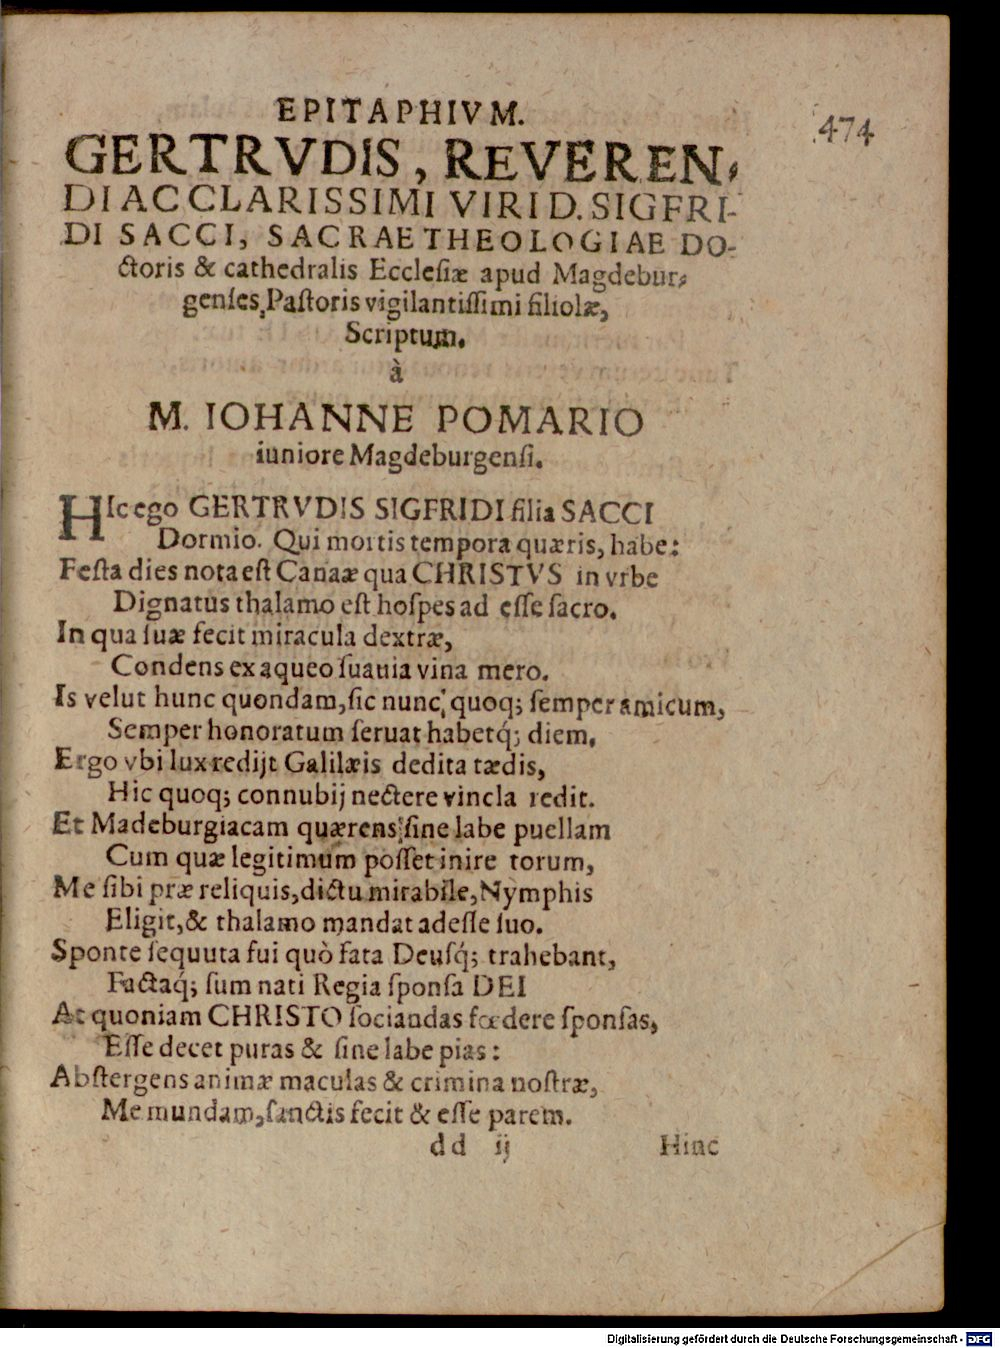 EPITAPHIVM.
474
GERTRVDIS, REVEREN-
DI AC CLARISSIMI VIRI D. SIGFRI-
DI SACCI, SACRAE THEOLOGIAE DO-
ctoris & cathedralis Ecclesiæ apud Magdebur-
genses, Pastoris vigilantissimi filiolæ,
Scriptum.
à
M. IOHANNE POMARIO
iuniore Magdeburgensi.
HIc ego GERTRVDIS SIGFRIDI filia SACCI
Dormio. Qui mortis tempora quæris, habe:
Festa dies nota est Canaæ qua CHRISTVS in vrbe
Dignatus thalamo est hospes ad esse sacro.
In qua suæ fecit miracula dextræ,
Condens ex aqueo suauia vina mero.
Is velut hunc quondam, sic nunc quoq; semper amicum,
Semper honoratum seruat habetq́; diem.
Ergo vbi lux redijt Galilæis dedita tædis,
Hic quoq; connubij nectere vincla redit.
Et Madeburgiacam quærens sine labe puellam
Cum quæ legitimum posset inire torum,
Me sibi præ reliquis, dictu mirabile, Nymphis
Eligit, & thalamo mandat adesse suo.
Sponte sequuta fui quò fata Deusq́; trahebant,
Factaq́; sum nati Regia sponsa DEI
At quoniam CHRISTO sociandas fœdere sponsas,
Esse decet puras & sine labe pias:
Abstergens animæ maculas & crimina nostræ,
Me mundam, sanctis fecit & esse parem.
dd ij Hinc
Digitalisierung gefördert durch die Deutsche Forschungsgemeinschaft - DFG